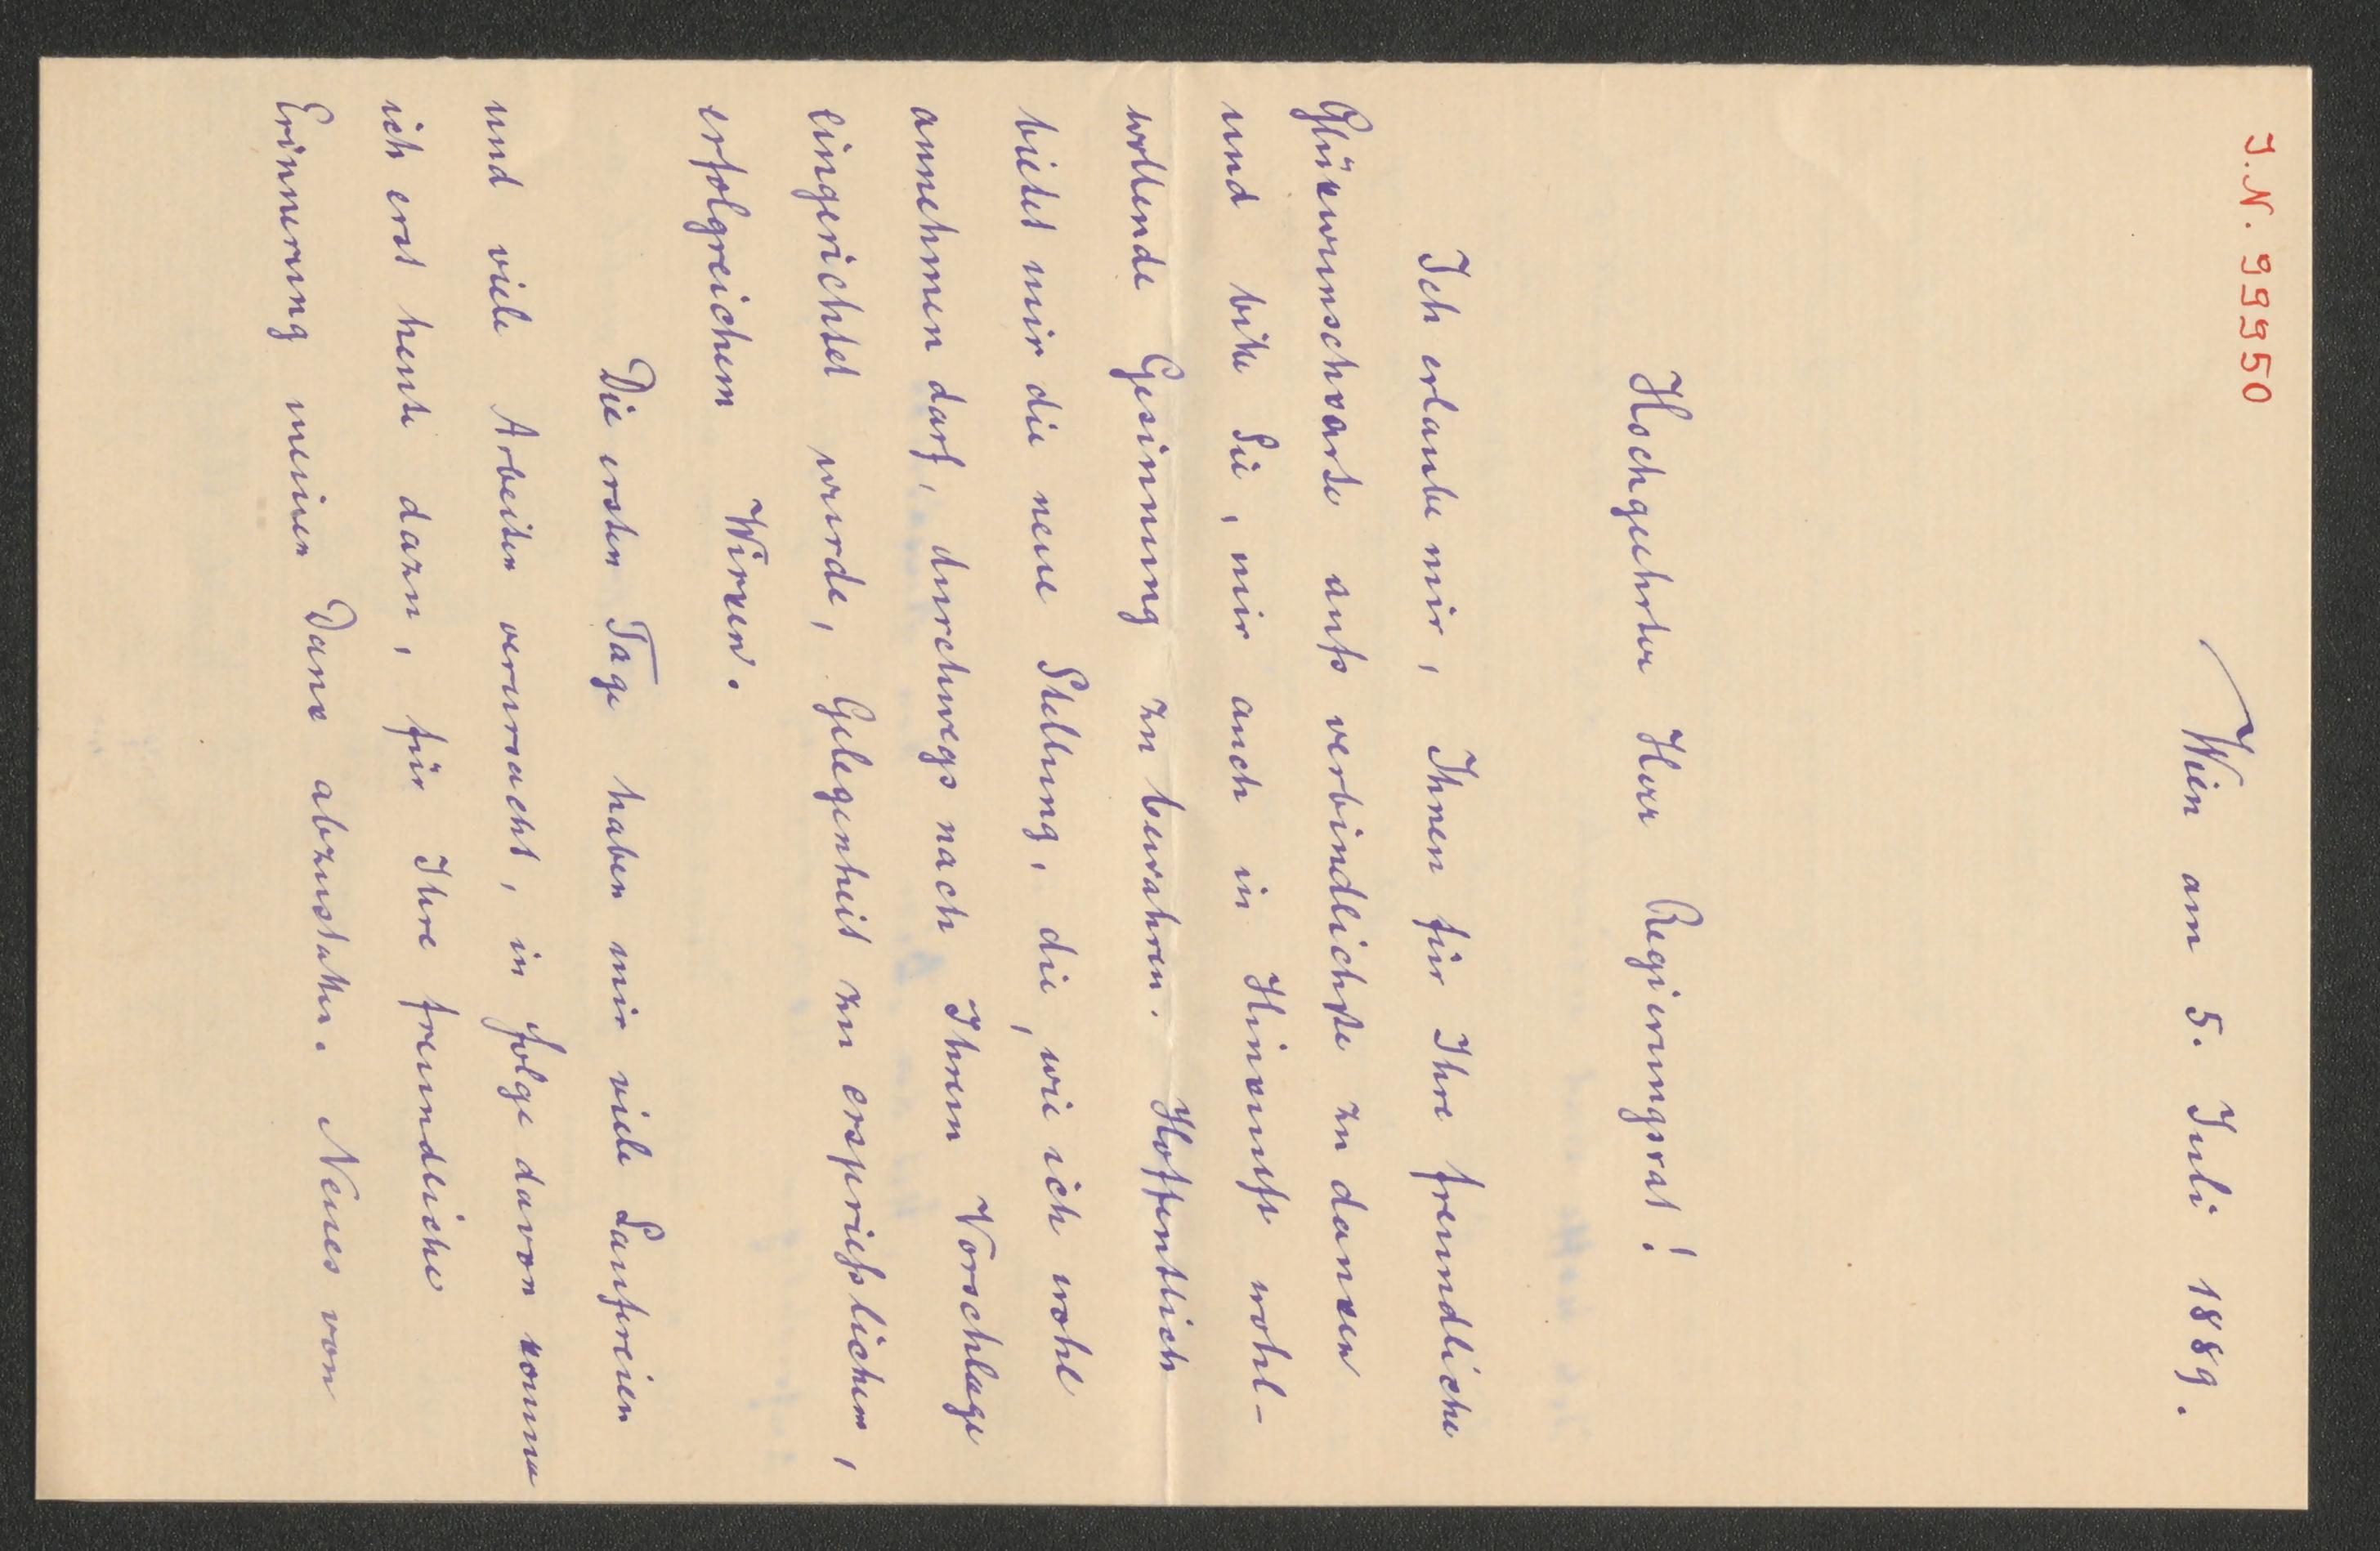 J.N. 99950
Wien am 5. Juli 1889.
Hochgeehrter Herr Regierungsrat!
Ich erlaube mir, Ihnen für Ihre freundliche
Glükwunschkarte aufs verbindlichste zu danken
und bitte Sie, mir auch in Hinkunft wohl-
wollende Gesinnung zu bewahren. Hoffentlich
bietet mir die neue Stellung, die, wie ich wohl
annehmen darf, durchwegs nach Ihrem Vorschlage
eingerichtet wurde, Gelegenheit zu ersprießlichem,
erfolgreichem Wirken.
Die ersten Tage haben mir viele Laufereien
und viele Arbeiten verursacht, in folge davon komme
ich erst heute dazu, für Ihre freundliche
Erinnerung meinen Dank abzustatten. Neues von